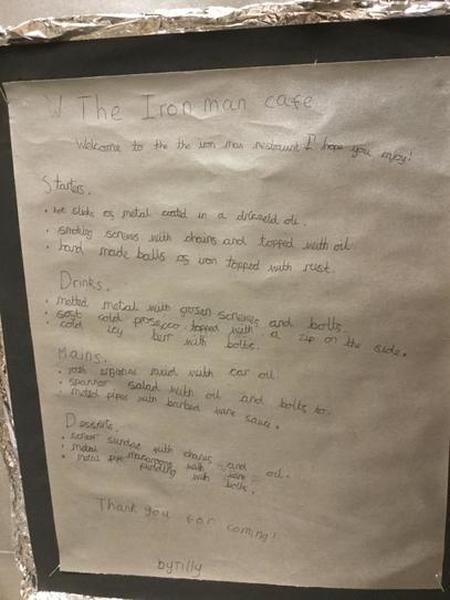 W The Iron man cafe
Welcome to the the iron man restraunt I hope you enjoy!
Starters.
• hot slicks of metal coated in a oil.
• smoking screws with chains and topped with oil
• hand made balls of iron topped with rust.
Drinks.
• melted metal with frosen screws and bolts.
• cold prosecco topped with a zip on the side.
• cold icy with bolts.
Mains.
• mixed with car oil.
• spannor salad with oil and bolts
• melted pipes with barbed wire sauce.
Desserts.
• sundae with chains and oil.
• metal with
• metal pudding with bolts.
Thank you for coming!
by Tilly